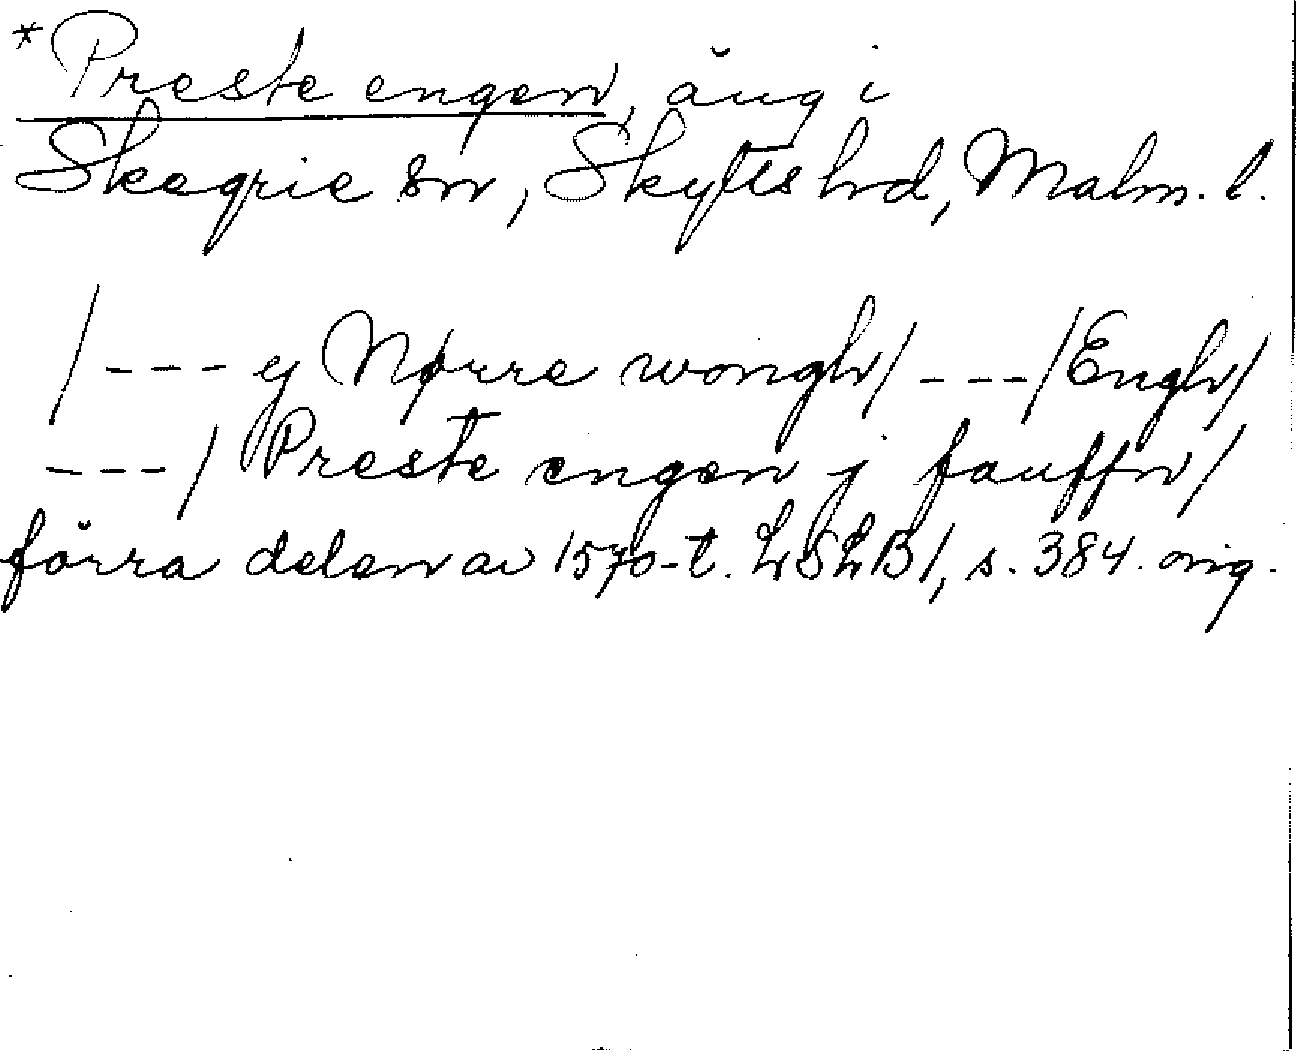 *Preste engen, äng i
Skegrie sn, Skytts hd, Malm. l.
/--- ej Nørre wongh/ ---/Engh/
---/ Preste engen j fauffn/
förra delen av 1570-t. LSLB1, s. 384. orig.